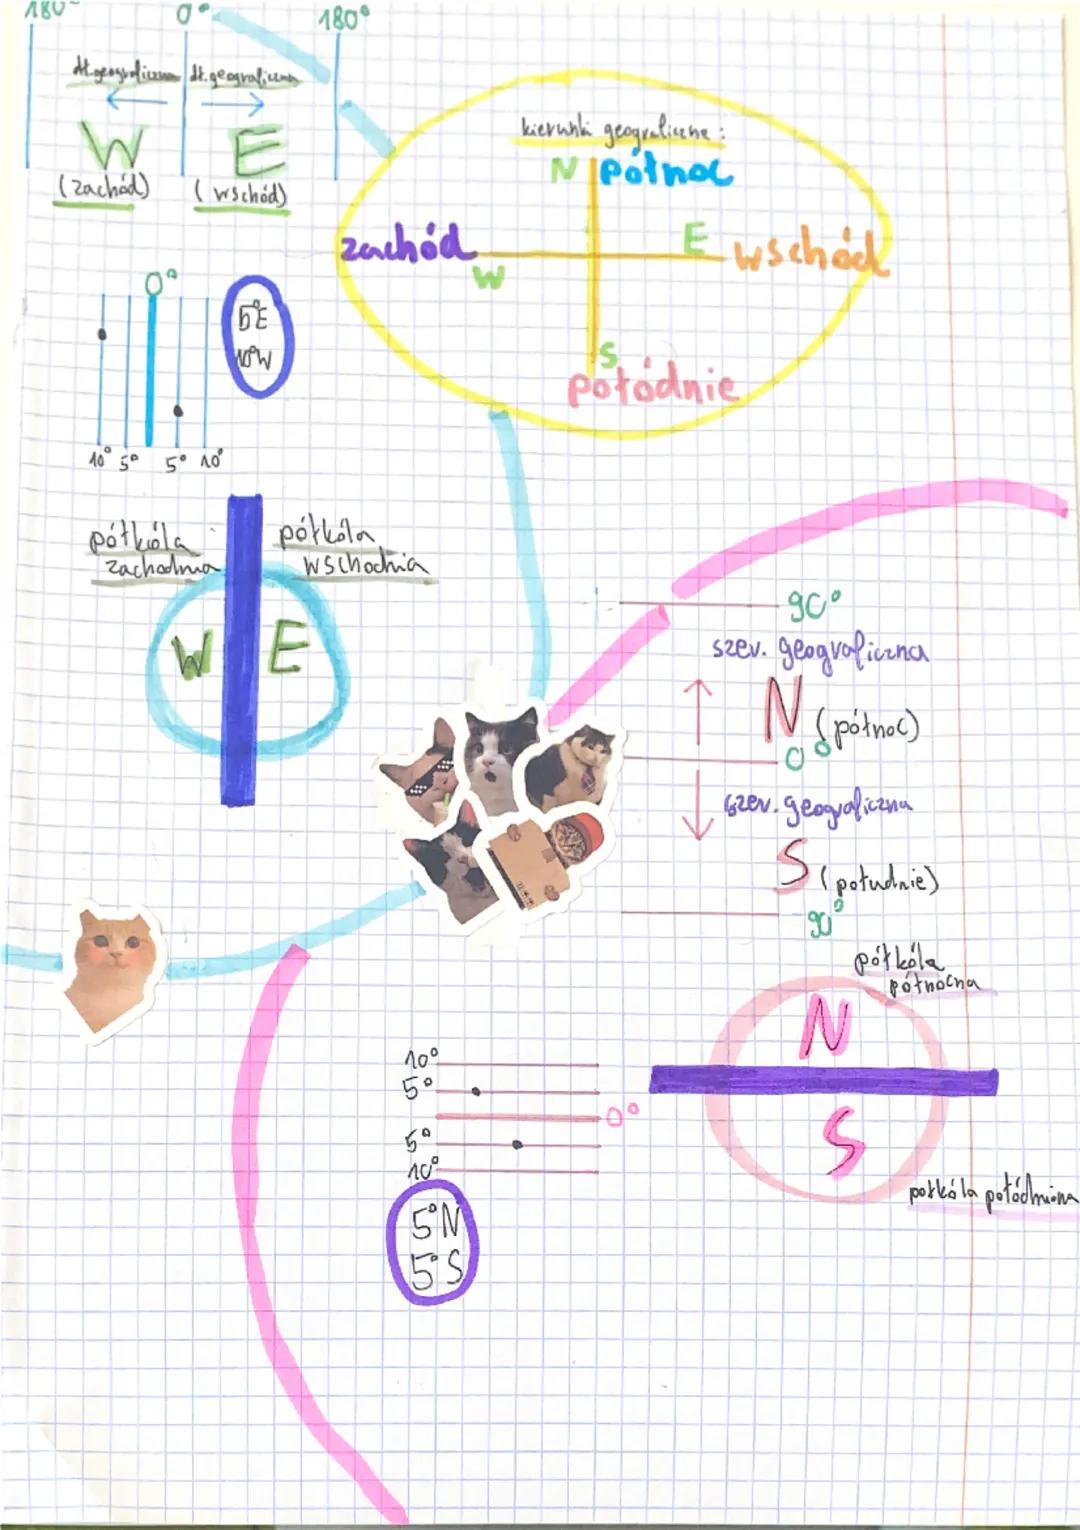 180° 0° 180°
dł. geograficzna dł. geograficzna
W E
(zachód) (wschód)
kierunki geograficzne:
N północ
zachód E wschód
W
S
połódnie
0°
5°E
10°W
10° 5° 5° 10°
półkóla
zachodnia
półkóla
wschodnia
W E
90°
szer. geograficzna
N (północ)
0°
szer. geograficzna
S (południe)
90°
półkóla
północna
N
S
półkóla połódniona
10°
5°
0°
5°
10°
5°N
5°S